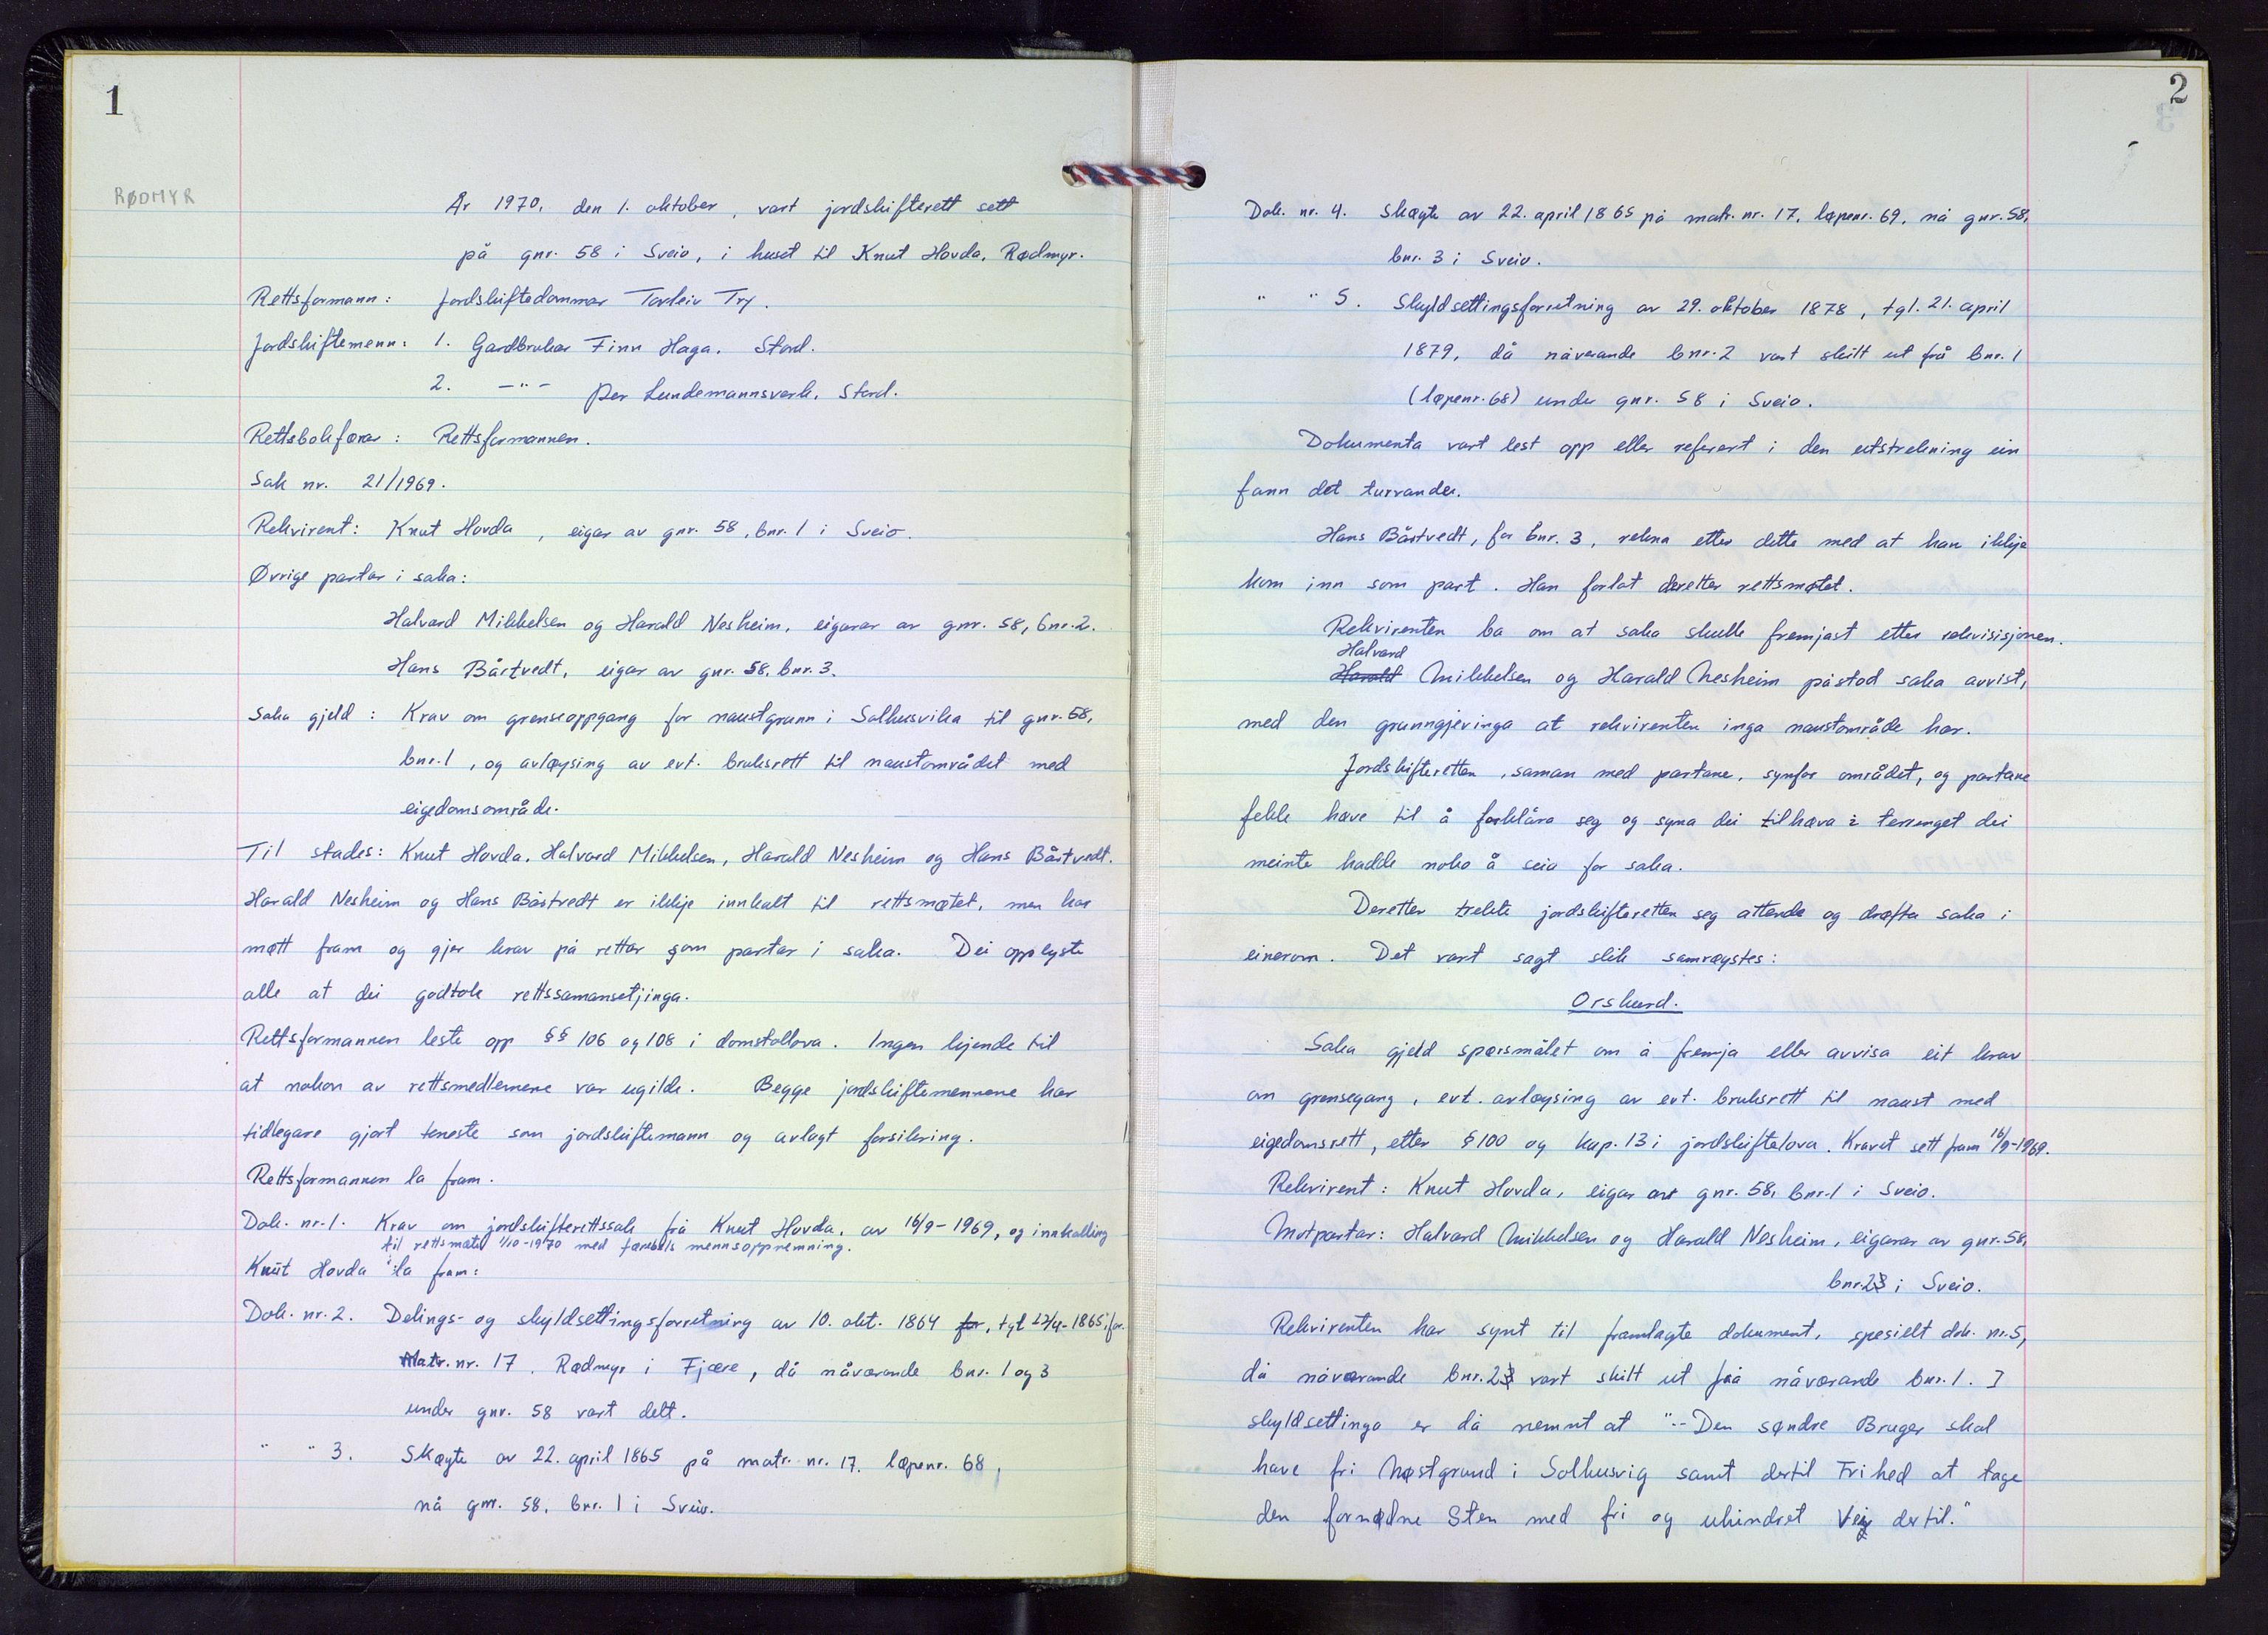 1
RØDMYR
År 1970, den 1. oktober, vart jordskifterett sett
på gnr. 58 i Sveio, i huset til Knut Hovda, Rødmyr.
Rettsformann: Jordskiftedommar Torleiv Try.
Jordskiftemenn: 1. Gardbrukar Finn Haga, Stord.
2. -"- Per Lundemannsverk, Stord.
Rettsbokførar: Rettsformannen.
Sak nr. 21/1969.
Rekvirent: Knut Hovda, eigar av gnr. 58, bnr. 1 i Sveio.
Øvrige partar i saka:
Halvard Mikkelsen og Harald Nesheim, eigarar av gnr. 58, bnr. 2.
Hans Båstvedt, eigar av gnr. 58, bnr. 3.
Saka gjeld: Krav om grenseoppgang for naustgrunn i Solhusvika til gnr. 58,
bnr. 1, og avløysing av evt. bruksrett til naustområdet med
eigedomsområde.
Til stades: Knut Hovda, Halvard Mikkelsen, Harald Nesheim og Hans Båstvedt.
Harald Nesheim og Hans Båstvedt er ikkje innkalt til rettsmøtet, men har
møtt fram og gjer krav på rettar som partar i saka. Dei opplyste
alle at dei godtok rettssamansetjinga.
Rettsformannen leste opp §§ 106 og 108 i domstollova. Ingen kjende til
at nokon av rettsmedlemene var ugilde. Begge jordskiftemennene har
tidlegare gjort teneste som jordskiftemann og avlagt forsikring.
Rettsformannen la fram.
Dok. nr. 1. Krav om jordskifterettssak frå Knut Hovda, av 16/9-1969, og innkalling
til rettsmøte 1/10-1970 med førebels mennsoppnemning.
Knut Hovda la fram:
Dok. nr. 2. Delings- og skyldsettingsforretning av 10. okt. 1864 for, tgl 22/4-1865, for
Matr. nr. 17. Rødmyr i Fjære, då nåværande bnr. 1 og 3
under gnr. 58 vart delt.
" " 3. Skøyte av 22. april 1865 på matr. nr. 17. løpenr. 68,
nå gnr. 58, bnr. 1 i Sveio.
2
Dok. nr. 4. Skøyte av 22. april 1865 på matr. nr. 17. løpenr. 69, nå gnr. 58,
bnr. 3 i Sveio.
" " 5. Skyldsettingsforretning av 29. oktober 1878, tgl. 21. april
1879, då nåverande bnr. 2 vart skilt ut frå bnr. 1
(løpenr. 68) under gnr. 58 i Sveio.
Dokumenta vart lest opp eller referert i den utstrekning ein
fann det turvande.
Hans Båstvedt, for bnr. 3, rekna etter dette med at han ikkje
kom inn som part. Han forlot deretter rettsmøtet.
Rekvirenten ba om at saka skulle fremjast etter rekvisisjonen.
Halvard
Harald Mikkelsen og Harald Nesheim påstod saka avvist,
med den grunngjevinga at rekvirenten inga naustområde har.
Jordskifteretten, saman med partane, synfor området, og partane
fekk høve til å forklåra seg og syna dei tilhøva i terrenget dei
meinte hadde noko å seia for saka.
Deretter trekte jordskifteretten seg attende og drøfta saka i
einerom. Det vart sagt slik samrøystes:
Orskurd.
Saka gjeld spørsmålet om å fremja eller avvisa eit krav
om grensegang, evt. avløysing av evt. bruksrett til naust med
eigedomsrett, etter § 100 og kap. 13 i jordskiftelova. Kravet sett fram 16/9-1969.
Rekvirent: Knut Hovda, eigar av gnr. 58, bnr. 1 i Sveio.
Motpartar: Halvard Mikkelsen og Harald Nesheim, eigarar av gnr. 58,
bnr. 2 i Sveio.
Rekvirenten har synt til framlagte dokument, spesielt dok. nr. 5,
då nåværande bnr. 2 vart skilt ut frå nåværande bnr. 1. I
skyldsettinga er då nemnt at "-- Den søndre Bruger skal
have fri Nøstgrund i Solhusvig samt dertil Frihed at tage
den fornødne Sten med fri og uhindret Veig dertil."